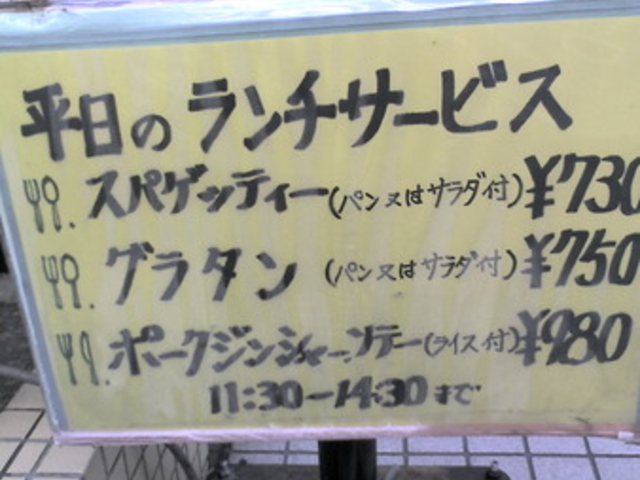 平日のランチサービス
スパゲッティー(パン又はサラダ付)¥730
グラタン (パン又はサラダ付)¥750
ポークジンジャーソテー(ライス付)¥980
11:30-14:30まで